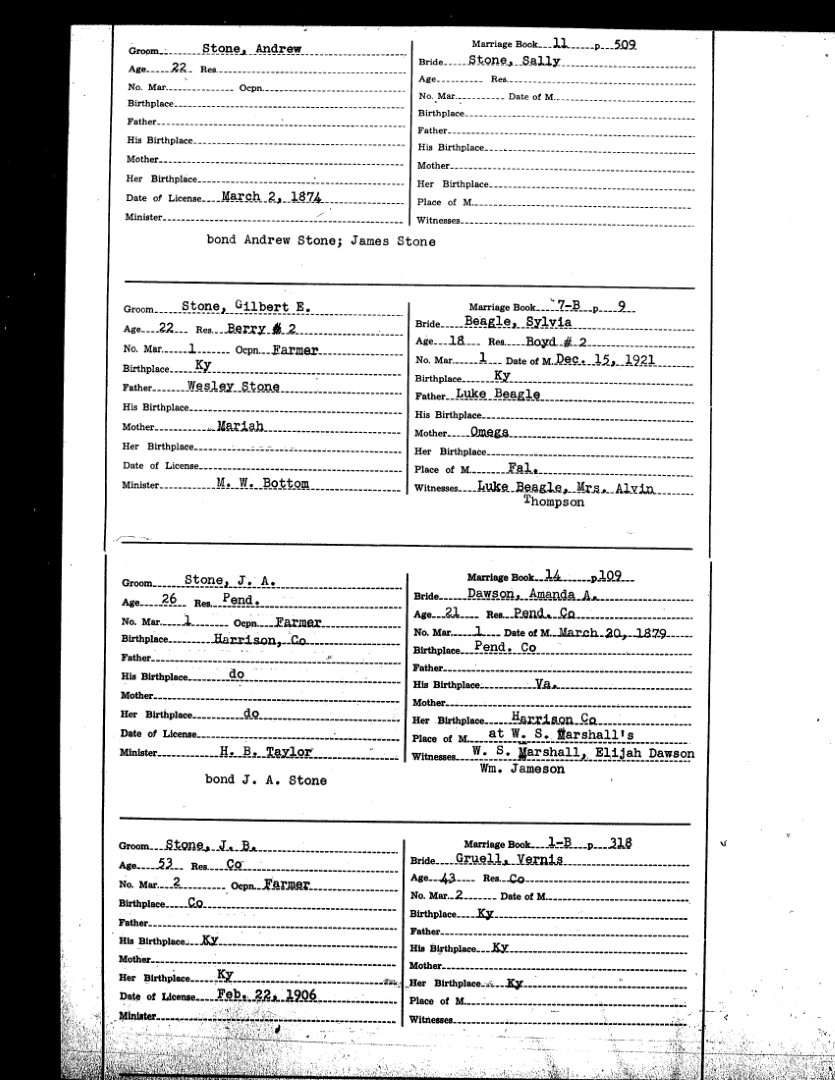 Groom Stone, Andrew
Age 22 Res.
No. Mar. Ocpn.
Birthplace
Father
His Birthplace
Mother
Her Birthplace
Date of License March 2, 1874
Minister
Marriage Book 11 p 509
Bride Stone, Sally
Age Res.
No. Mar. Date of M.
Birthplace
Father
His Birthplace
Mother
Her Birthplace
Place of M.
Witnesses
bond Andrew Stone; James Stone
Groom Stone, Gilbert E.
Age 22 Res. Berry # 2
No. Mar. 1 Ocpn. Farmer
Birthplace Ky
Father Wesley Stone
His Birthplace
Mother Mariah
Her Birthplace
Date of License
Minister M. W. Bottom
Marriage Book 7-B p 9
Bride Beagle, Sylvia
Age 18 Res. Boyd # 2
No. Mar. 1 Date of M. Dec. 15, 1921
Birthplace Ky
Father Luke Beagle
His Birthplace
Mother Omega
Her Birthplace
Place of M. Fal.
Witnesses Luke Beagle, Mrs. Alvin
Thompson
Groom Stone, J. A.
Age 26 Res. Pend.
No. Mar. 1 Ocpn. Farmer
Birthplace Harrison, Co
Father
His Birthplace do
Mother
Her Birthplace do
Date of License
Minister H. B. Taylor
Marriage Book 14 p 109
Bride Dawson, Amanda A.
Age 21 Res. Pend. Co
No. Mar. 1 Date of M. March 20, 1879
Birthplace Pend. Co
Father
His Birthplace Va.
Mother
Her Birthplace Harrison Co
Place of M. at W. S. Marshall's
Witnesses W. S. Marshall, Elijah Dawson
Wm. Jameson
bond J. A. Stone
Groom Stone, J. B.
Age 53 Res. Co
No. Mar. 2 Ocpn. Farmer
Birthplace Co
Father
His Birthplace Ky
Mother
Her Birthplace Ky
Date of License Feb. 22, 1906
Minister
Marriage Book 1-B p 318
Bride Gruell, Vernis
Age 43 Res. Co
No. Mar. 2 Date of M.
Birthplace Ky
Father
His Birthplace Ky
Mother
Her Birthplace Ky
Place of M.
Witnesses